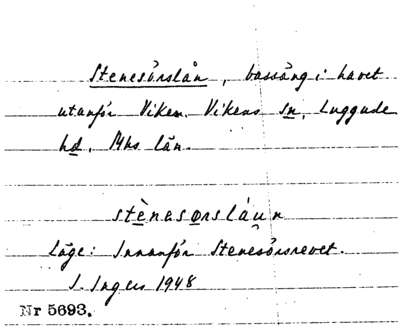 Stenesörslån, bassäng i havet
utanför Viken. Vikens sn, Luggude
hd, Mhs län.
stènesørsláu̥n
Läge: Innanför Stenesörsrevet.
I. Ingers 1948
Nr 5693.